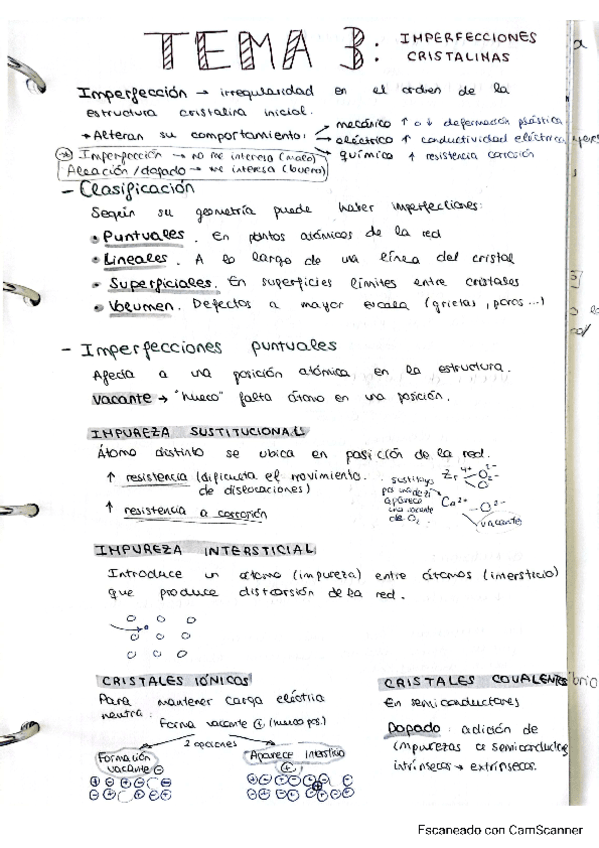 TEMA 3: IMPERFECCIONES CRISTALINAS
Imperfección → irregularidad en el orden de la
estructura cristalina inicial.
→ Alteran su comportamiento:
mecánico ↑ o ↓ deformación plástica
eléctrico ↑ conductividad eléctrica
químico ↑ resistencia corrosión
* Imperfección → no me interesa (malo)
Aleación/dopado → me interesa (bueno)
- Clasificación
Según su geometría puede haber imperfecciones:
• Puntuales. En puntos atómicos de la red
• Lineales. A lo largo de una línea del cristal
• Superficiales. En superficies límites entre cristales
• Volumen. Defectos a mayor escala (grietas, poros...)
- Imperfecciones puntuales
Afecta a una posición atómica en la estructura.
Vacante → "hueco" falta átomo en una posición.
IMPUREZA SUSTITUCIONAL
Átomo distinto se ubica en posición de la red.
↑ resistencia (dificulta el movimiento
de dislocaciones)
↑ resistencia a corrosión
sustituyo
aparece
una vacante
de O₂
Zr⁴⁺ O²⁻
O²⁻
Ca²⁺ - O²⁻
vacante
IMPUREZA INTERSTICIAL
Introduce un átomo (impureza) entre átomos (intersticio)
que produce distorsión de la red.
CRISTALES IÓNICOS
Para mantener carga eléctrica
neutra:
Forma vacante + (hueco pos.)
2 opciones
Formación
vacante -
Aparece intersticio
+
CRISTALES COVALENTES
En semiconductores
Dopado: adición de
impurezas a semiconductores
intrínsecos → extrínsecos.
Escaneado con CamScanner